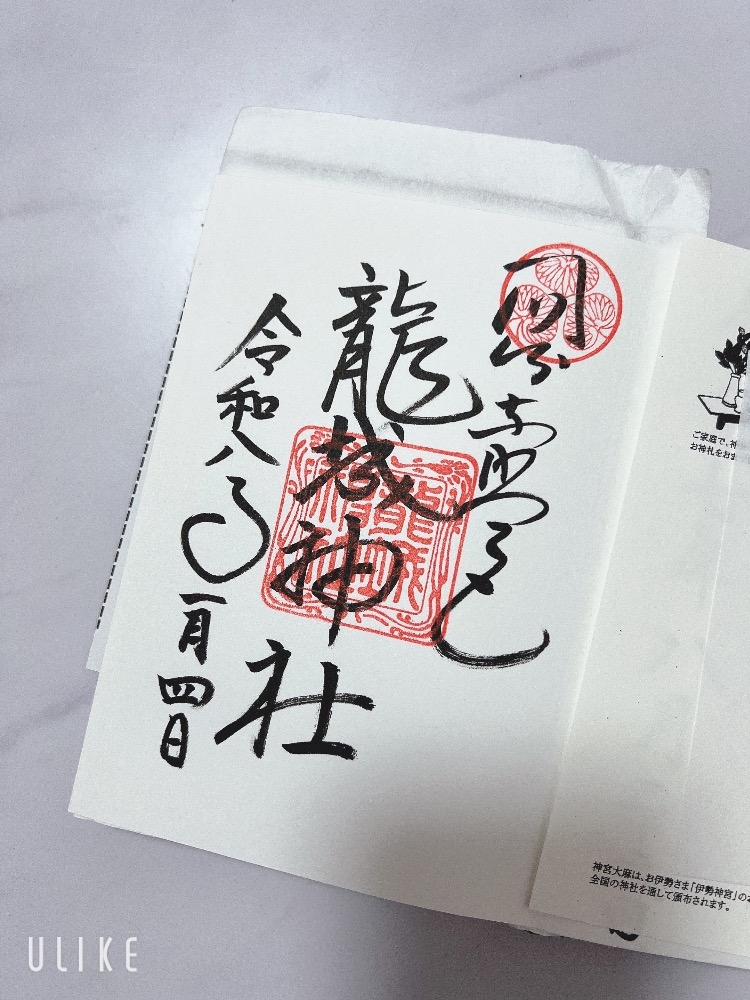 龍城神社
令和八年一月四日
ご家庭で、神
お神札をおま
神宮大麻は、お伊勢さま「伊勢神宮」のお
全国の神社を通して頒布されます。
ULIKE